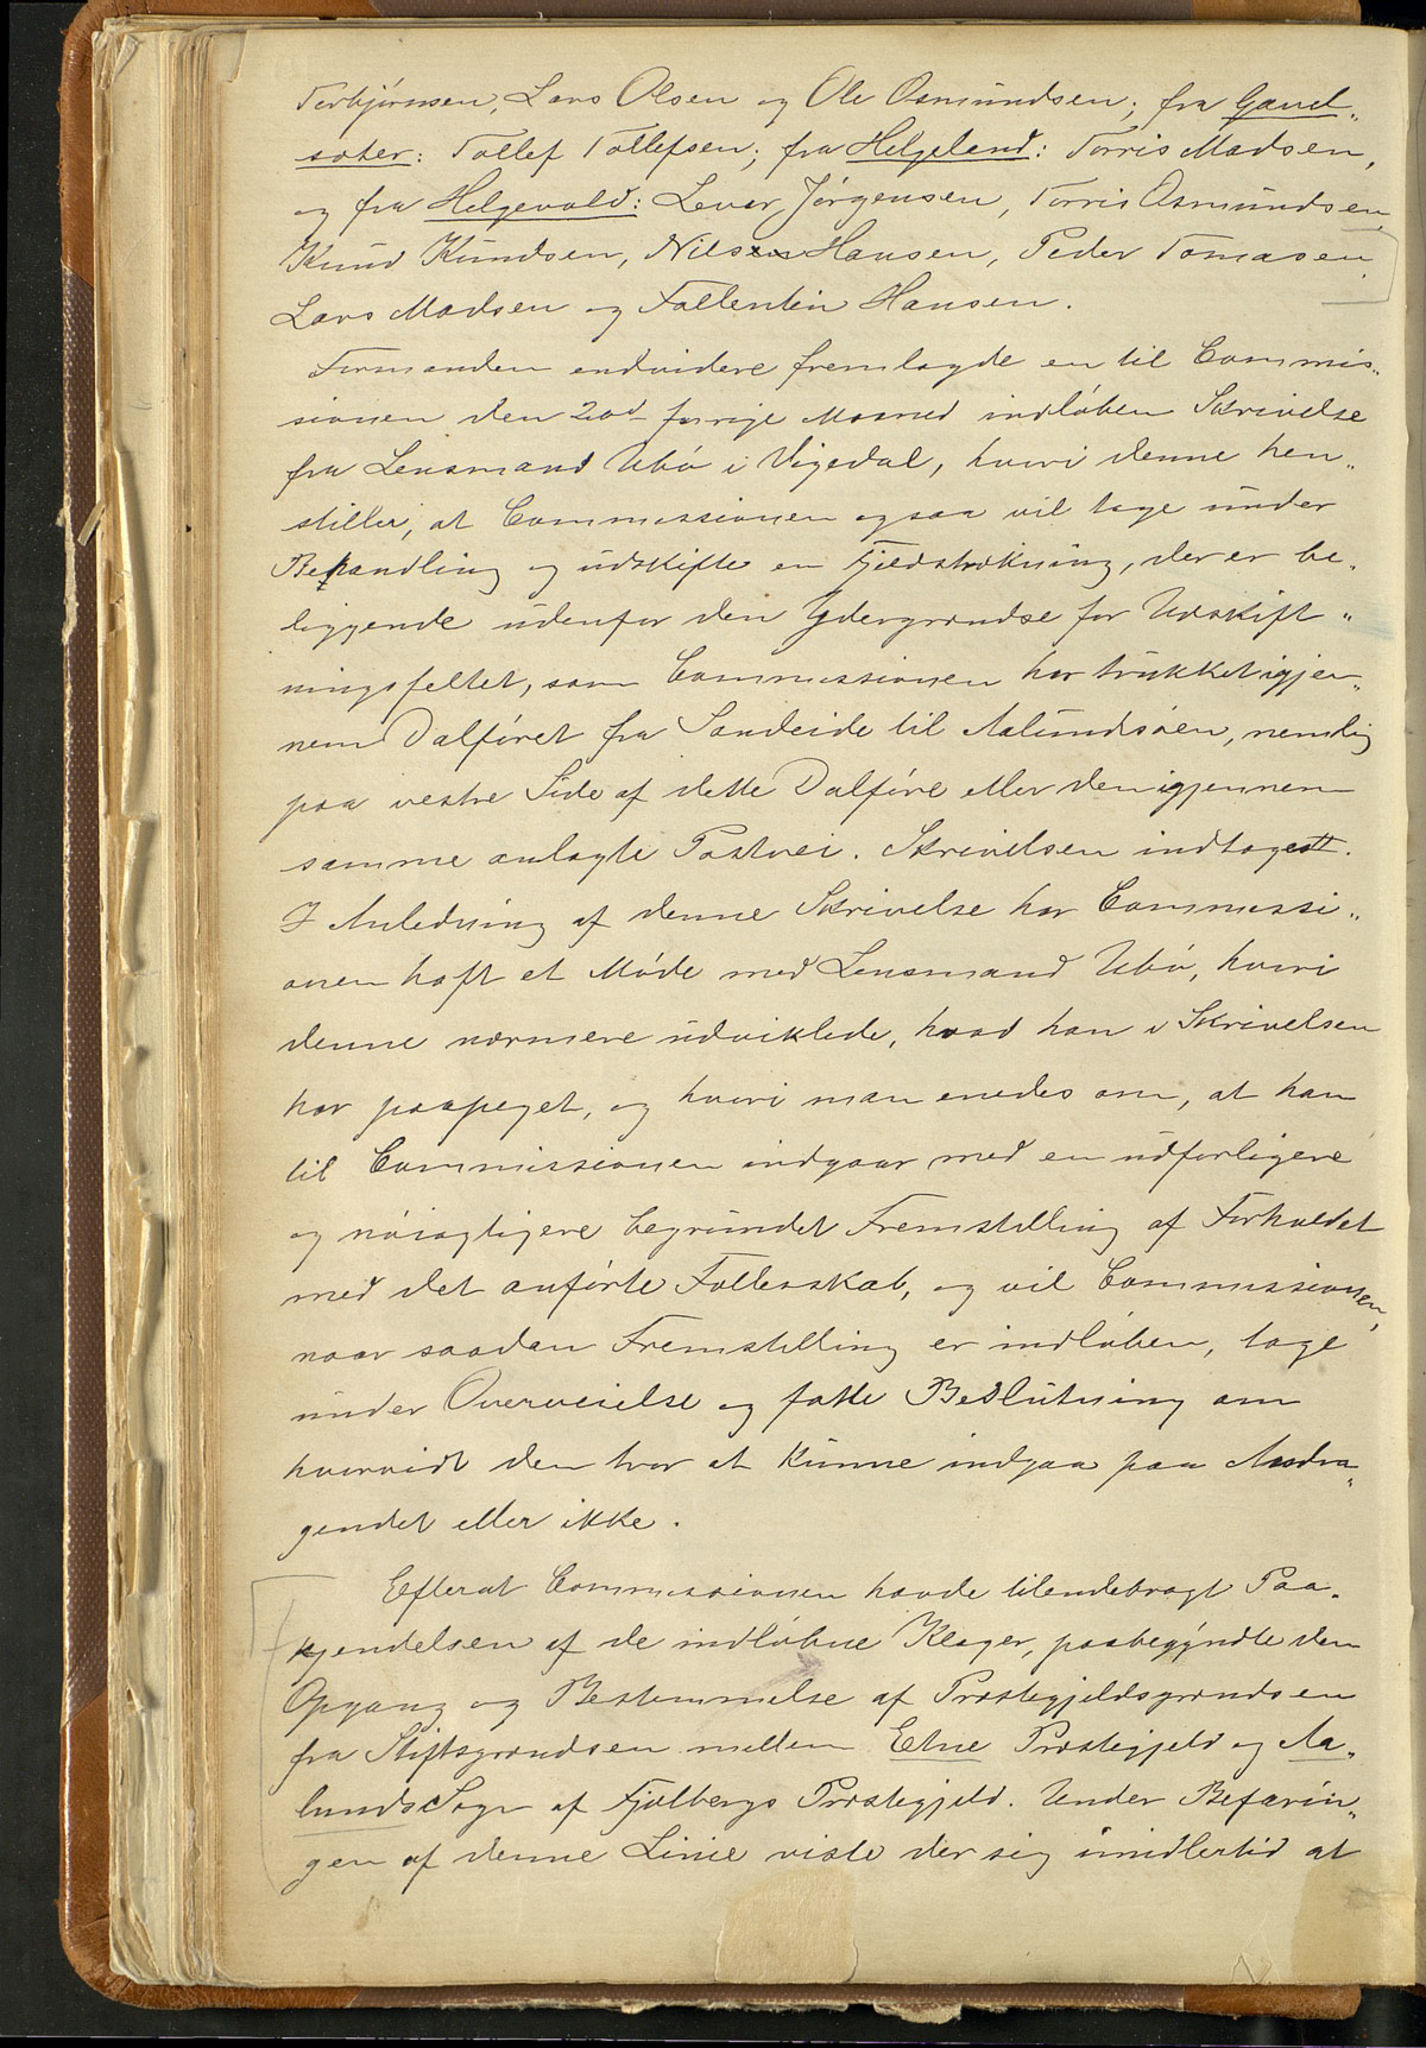 Torbjørnsen, Lars Olsen og Ole Osmundsen; fra Gaud„
sæter: Tollef Tollefsen; fra Helgeland: Torris Madsen,
og fra Helgevold: Lever Jørgensen, Torris Osmundsen,
Knud Knudsen, Nilsen Hansen, Peder Tomasen,
Lars Madsen og Fallentin Hansen.
Formanden endvidere fremlagde en til Commis„
sionen den 20d forrige Maaned indløben Skrivelse
fra Lensmand Ubø i Vigedal, hvori denne hen„
stiller, at Commissionen ogsaa vil tage under
Behandling og udskifte en Fjeldstrækning, der er be„
liggende udenfor den Ydergrændse for Udskift„
ningsfeltet, som Commissionen har trukket igjen„
nem Dalføret fra Sandeide til Aalundsøen, nemlig
paa vestre Side af dette Dalføre eller den igjennem
samme anlagte Postvei. Skrivelsen indtoges
I Anledning af denne Skrivelse har Commissi„
onen haft et Møde med Lensmand Ubø, hvori
denne nærmere udviklede, hvad han i Skrivelsen
har paapeget, og hvori man enedes om, at han
til Commissionen indgaar med en udførligere
og nøiagtigere begrundet Fremstilling af Forholdet
med det anførte Fællesskab, og vil Commissionen,
naar saadan Fremstilling er indløben, tage
under Overveielse og fatte Beslutning om
hvorvidt den tror at kunne indgaa paa Andra„
gendet eller ikke.
Efterat Commissionen havde tilendebragt Paa„
kjendelsen af de indløbne Klager, paabegyndte den
Opgang og Bestemmelse af Præstegjeldsgrændsen
fra Stiftsgrændsen mellem Etne Præstegjeld og Aa„
lunds Sogn af Fjelbergs Præstegjeld. Under Befarin„
gen af denne Linie viste der sig imidlertid at